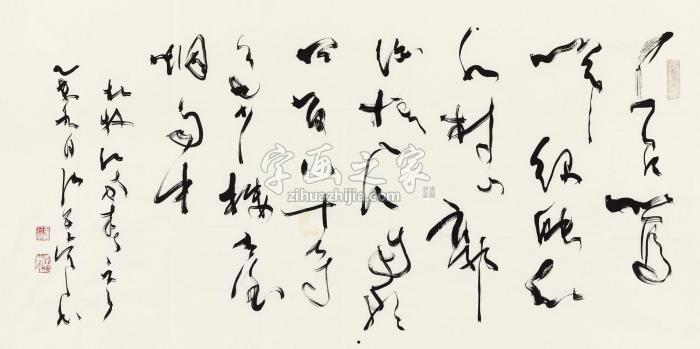 千里鶯
啼綠映紅
水村山郭
酒旗風南朝
四百八十寺
多少樓臺
烟雨中
杜牧江南春
九月
字画之家
zihuazhijia.com